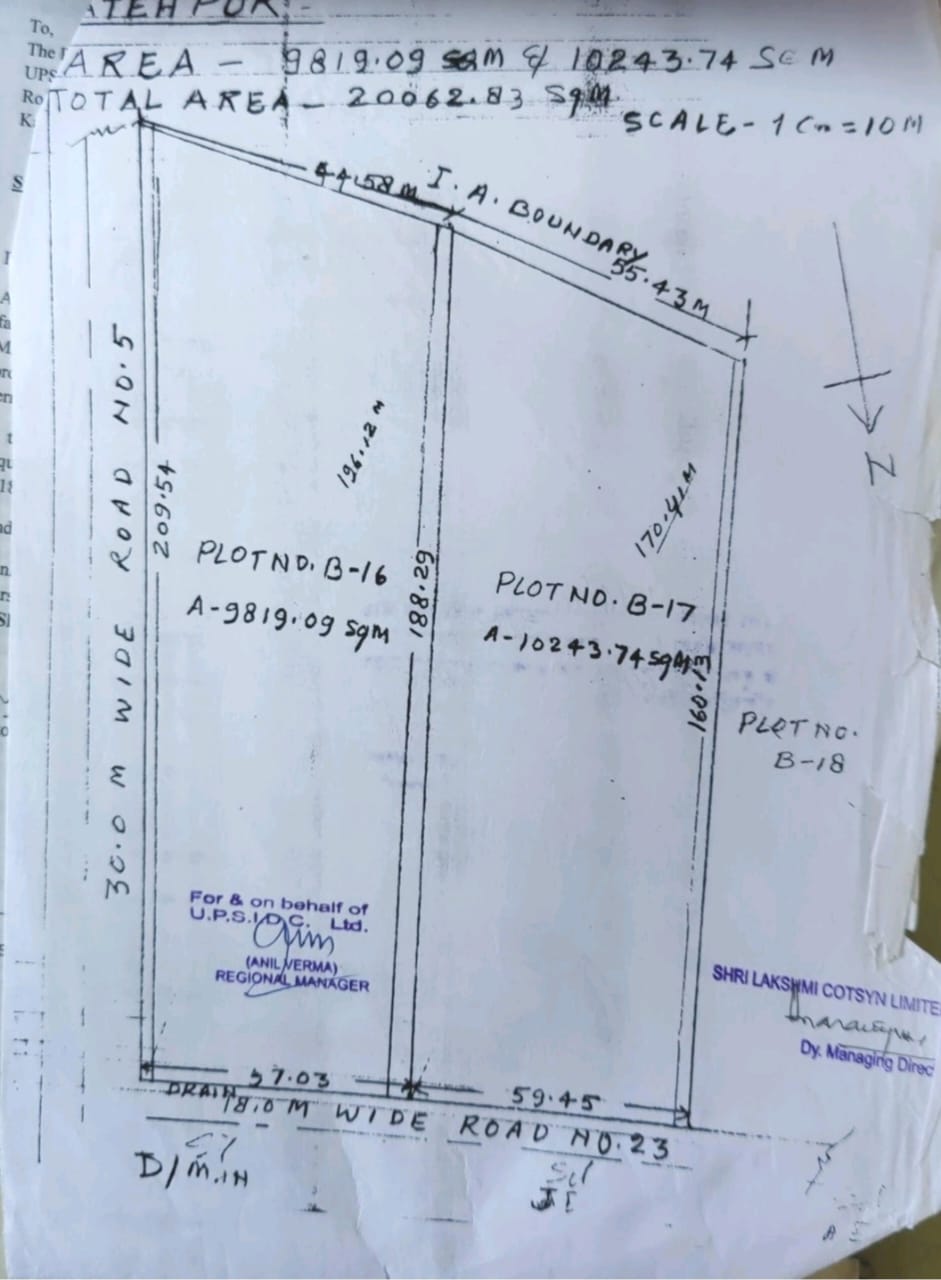 To,
The
UPS
Ro
K
ATEHPUR:-
AREA - 9819.09 SQM & 10243.74 SQM
TOTAL AREA - 20062.83 SqM.
SCALE - 1 Cm = 10 M
44.58 M
I. A. BOUNDARY
55.43 M
30.0 M WIDE ROAD NO. 5
209.54
196.12 M
188.29
160.13
PLOT NO. B-16
A-9819.09 SqM
PLOT NO. B-17
A-10243.74 SqM
PLOT NO.
B-18
N
For & on behalf of
U.P.S.I.D.C. Ltd.
(ANIL VERMA)
REGIONAL MANAGER
SHRI LAKSHMI COTSYN LIMITE
Dy. Managing Direc
57.03
59.45
DRAIN
18.0 M WIDE ROAD NO. 23
Sd/
D/M.IN
Sd/
JE